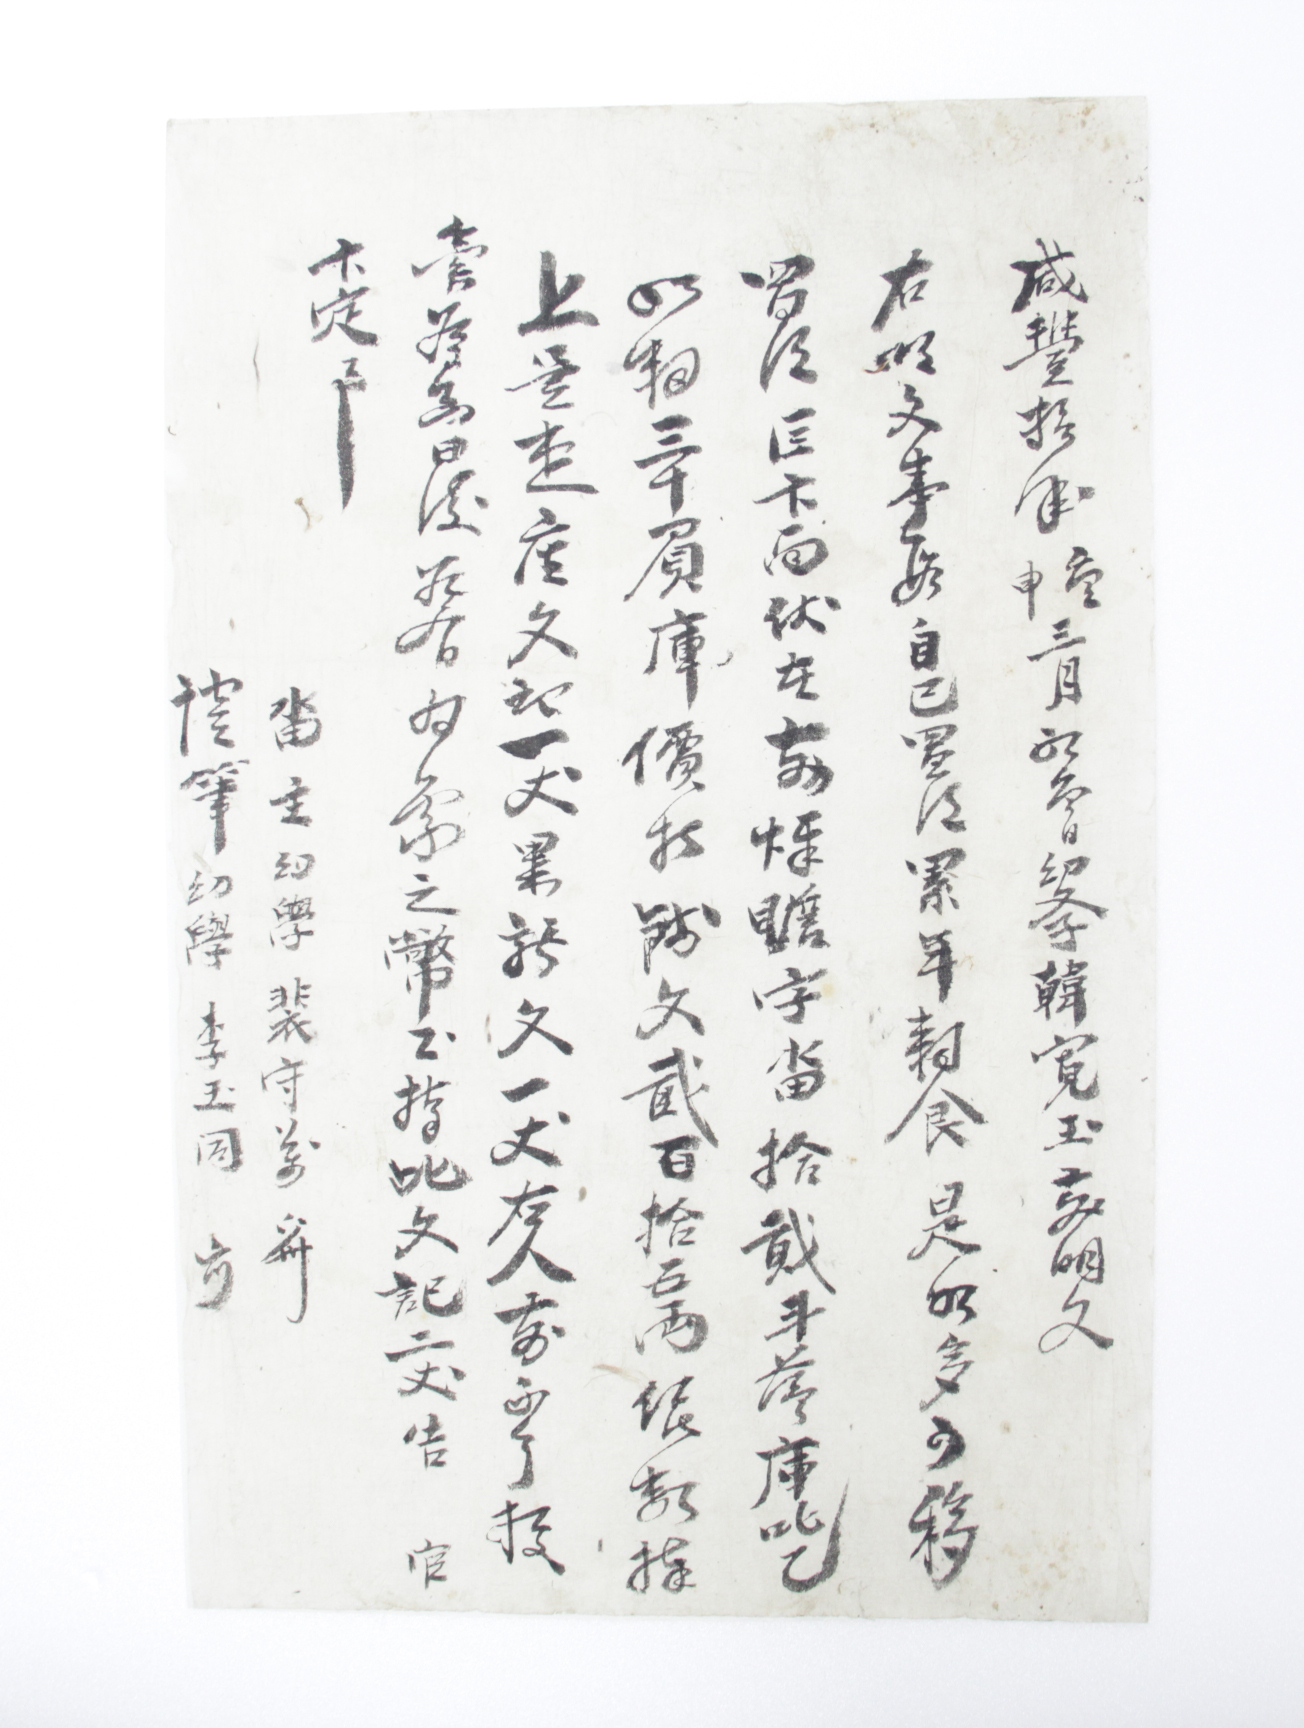 咸豐拾年庚申三月初五日幼學韓寬玉前明文
右明文事段自己買得累年耕食是如多可移
買次區卜南伏在員煇瞻字畓拾貳斗落庫叱乙
以租三十負庫價折錢文貳百拾五兩依數捧
上是遣舊文記一丈果新文一丈右人前永永放
賣爲去日後若有雜談之弊以此文記文告官
卞定事
畓主幼學裵守萬
證筆幼學李玉同